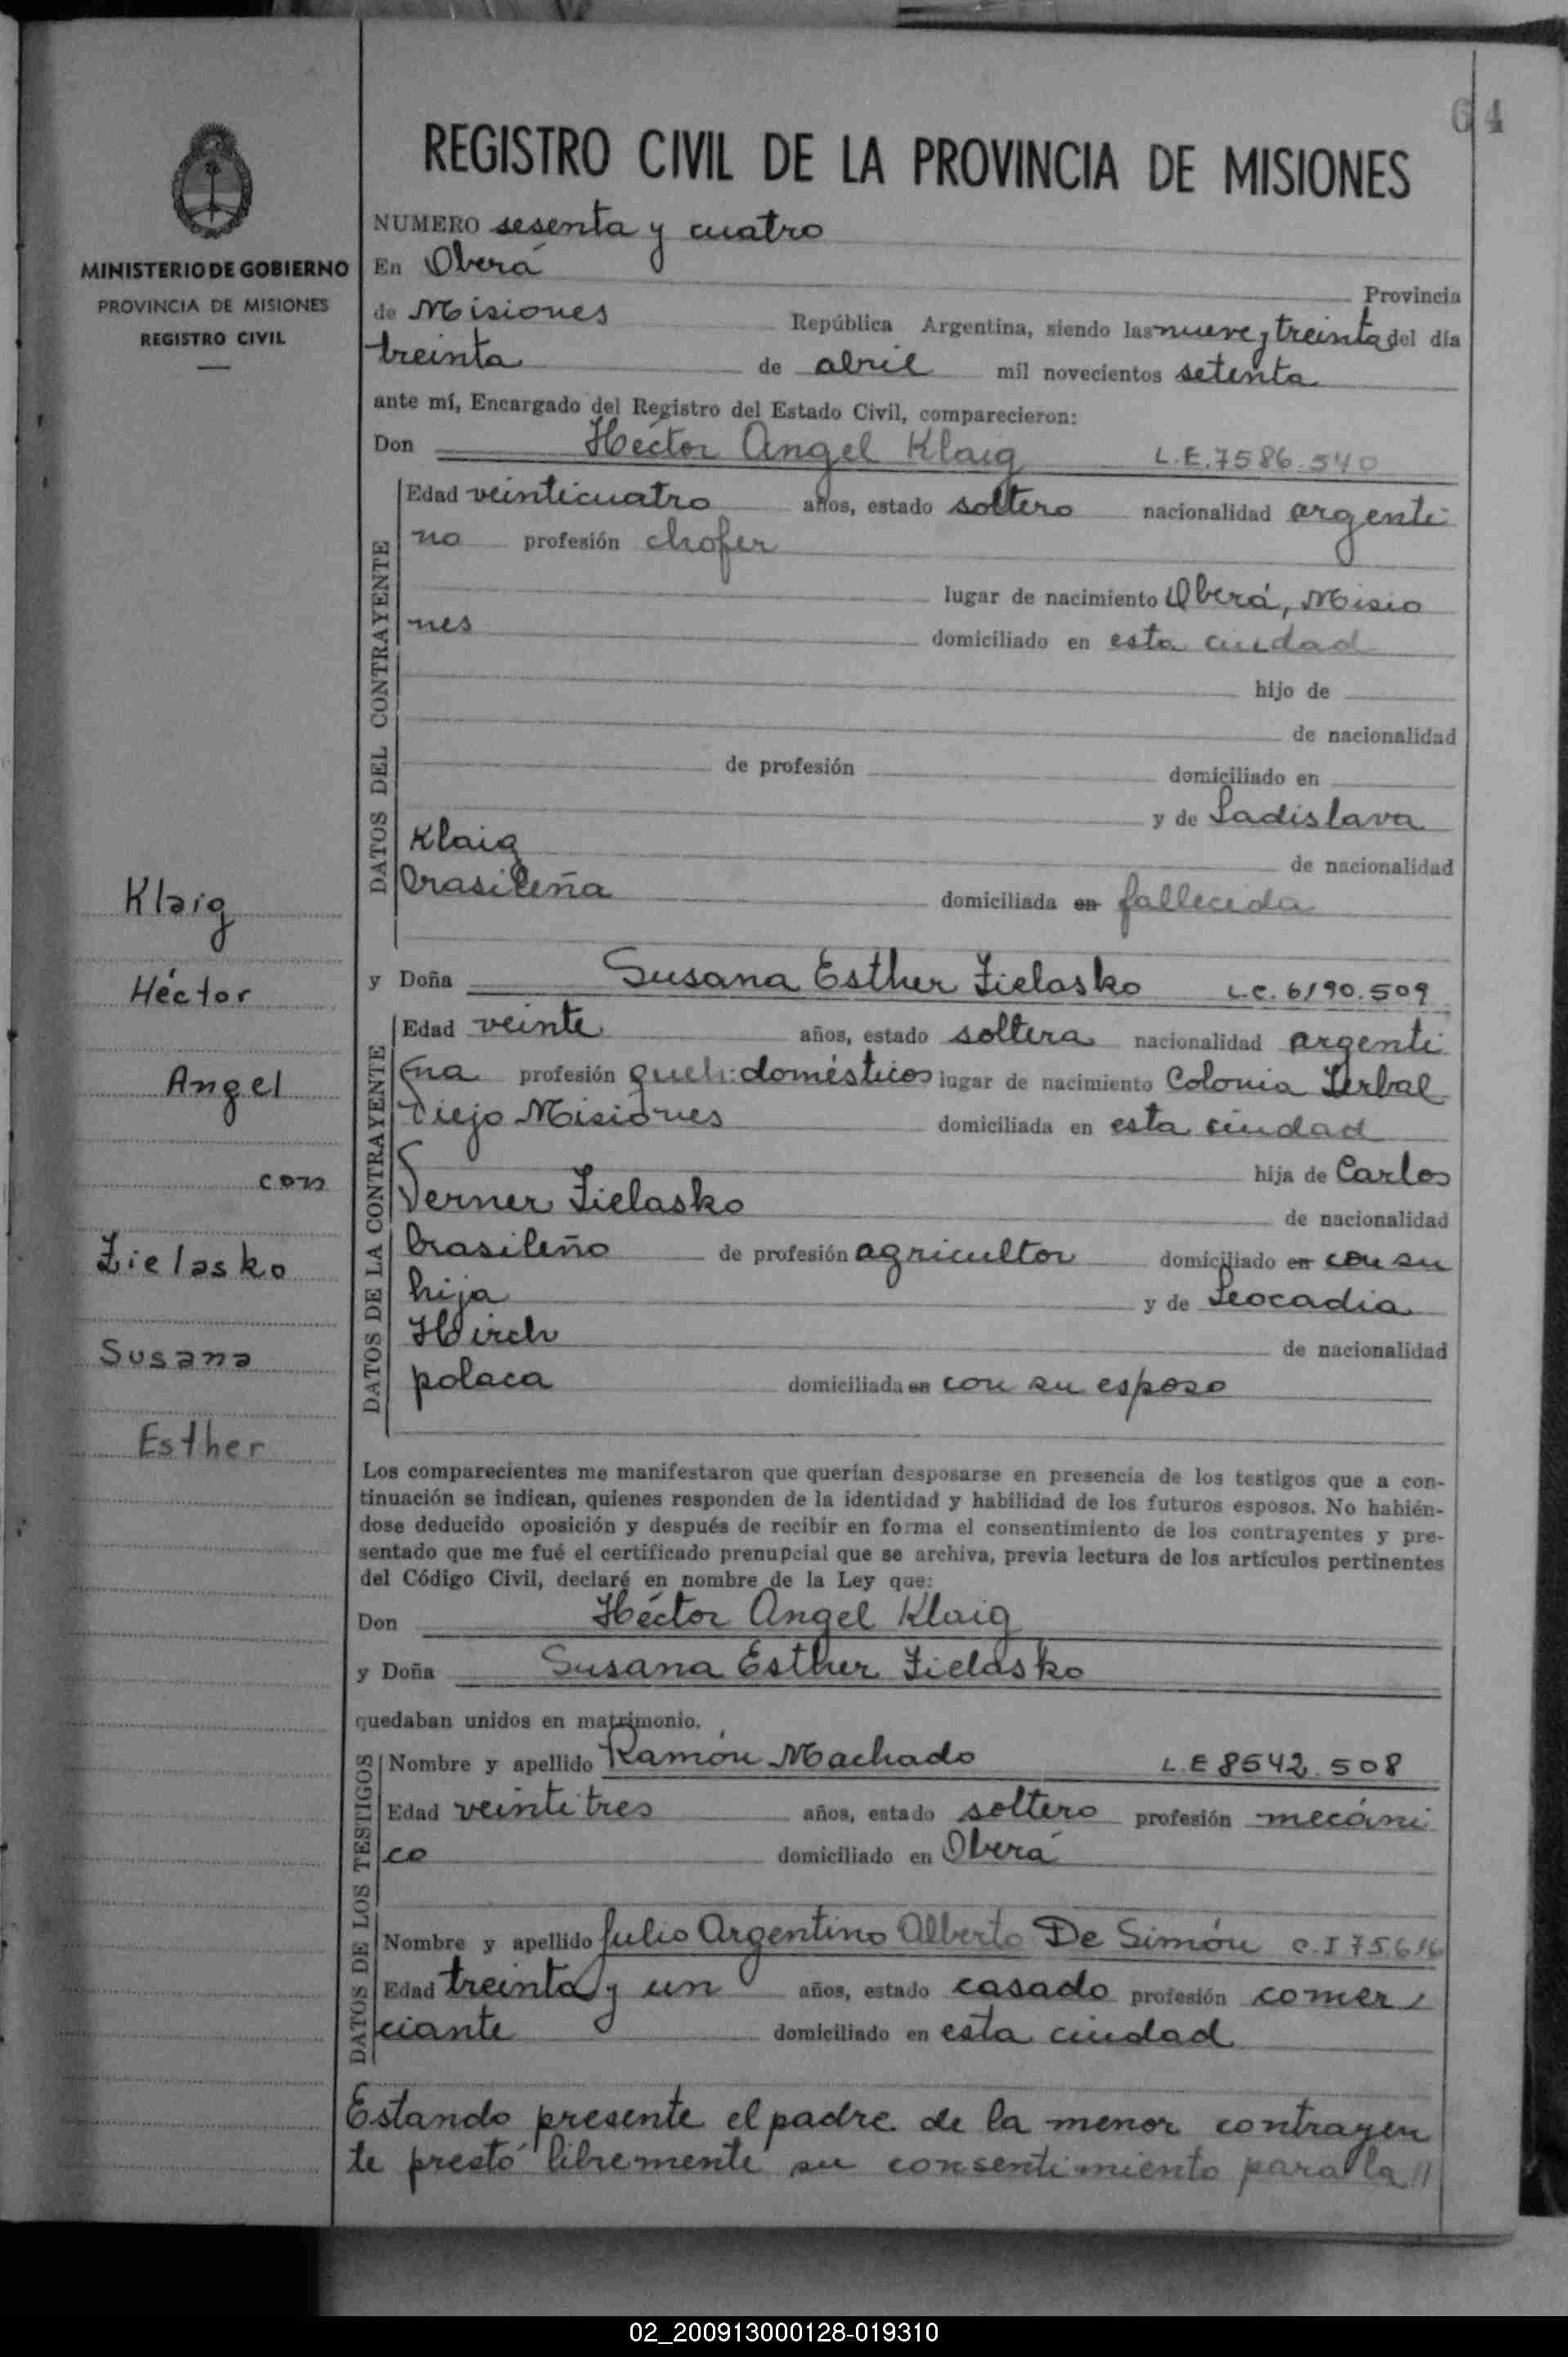 64
REGISTRO CIVIL DE LA PROVINCIA DE MISIONES
MINISTERIO DE GOBIERNO
PROVINCIA DE MISIONES
REGISTRO CIVIL
NUMERO sesenta y cuatro
En Oberá Provincia
de Misiones República Argentina, siendo las nueve y treinta del día
treinta de abril mil novecientos setenta
ante mí, Encargado del Registro del Estado Civil, comparecieron:
Don Héctor Angel Klaig L.E.7586.540
DATOS DEL CONTRAYENTE
Edad veinticuatro años, estado soltero nacionalidad argenti
no profesión chofer
lugar de nacimiento Oberá, Misio
nes domiciliado en esta ciudad
hijo de
de nacionalidad
de profesión domiciliado en
y de Ladislava
Klaig de nacionalidad
brasileña domiciliada en fallecida
y Doña Susana Esther Zielasko L.C. 6190.509
DATOS DE LA CONTRAYENTE
Edad veinte años, estado soltera nacionalidad argenti
na profesión queh: domésticos lugar de nacimiento Colonia Yerbal
Viejo Misiones domiciliada en esta ciudad
hija de Carlos
Verner Zielasko de nacionalidad
brasileño de profesión agricultor domiciliado en con su
hija y de Leocadia
Hirch de nacionalidad
polaca domiciliada en con su esposo
Klaig
Héctor
Angel
con
Zielasko
Susana
Esther
Los comparecientes me manifestaron que querían desposarse en presencia de los testigos que a con-
tinuación se indican, quienes responden de la identidad y habilidad de los futuros esposos. No habién-
dose deducido oposición y después de recibir en forma el consentimiento de los contrayentes y pre-
sentado que me fué el certificado prenupcial que se archiva, previa lectura de los artículos pertinentes
del Código Civil, declaré en nombre de la Ley que:
Don Héctor Angel Klaig
y Doña Susana Esther Zielasko
quedaban unidos en matrimonio.
DATOS DE LOS TESTIGOS
Nombre y apellido Ramón Machado L.E 8542.508
Edad veintitres años, estado soltero profesión mecáni
co domiciliado en Oberá
Nombre y apellido Julio Argentino Alberto De Simón C.I 75.616
Edad treinta y un años, estado casado profesión comer
ciante domiciliado en esta ciudad
Estando presente el padre de la menor contrayen
te prestó libremente su consentimiento para la //
02_200913000128-019310